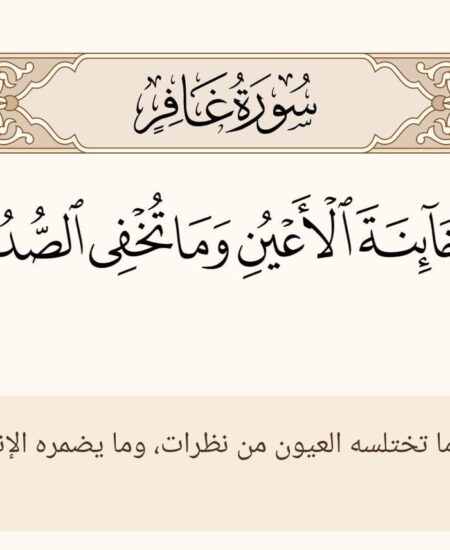 سُورَةُ غَافِرٍ
خَآئِنَةَ ٱلْأَعْيُنِ وَمَا تُخْفِى ٱلصُّدُ
ما تختلسه العيون من نظرات، وما يضمره الإنـ